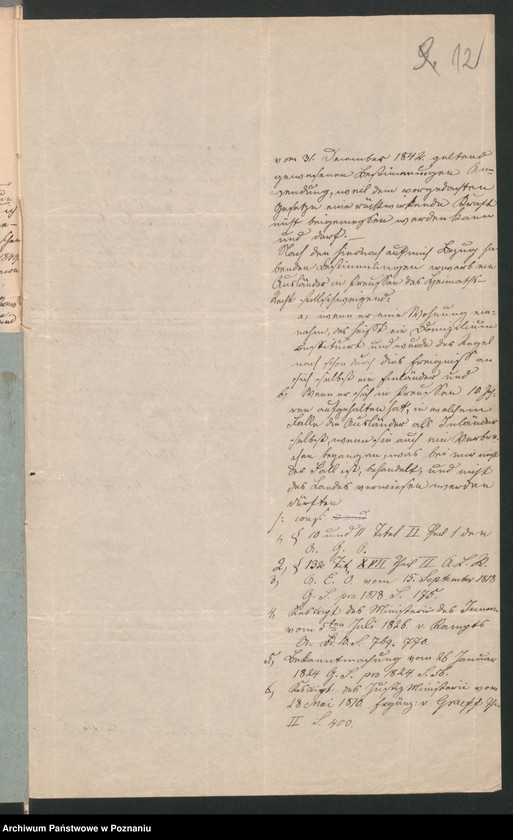 9. 12
vom 31. December 1842. geltend
gewesenen Bestimmungen An-
wendung, weil dem vorgedachten
Gesetze eine rückwirkende Kraft
nicht beigemessen werden kann
und darf. —
Nach den hiernach auf mich Bezug ha-
benden Bestimmungen erwarb ein
Ausländer in Preussen das Heimaths-
Recht stillschweigend:
a, wenn er eine Wohnung ein-
nahm, das heißt ein Domizilium
constituirt und wurde der Regel
nach schon durch dies Ereigniss an
sich selbst ein Inländer und
b, Wenn er sich in Preussen 10 Jah-
ren aufgehalten hat, in welchem
Falle die Ausländer als Inländer
selbst, wenn sie auch ein Verbre-
chen begangen, was bei mir nicht
der Fall ist, behandelt, und nicht
des Landes verwiesen werden
dürften
/: conf:
1, § 10 und 11 Titel II Theil 1 den
A. G. O.
2, § 132 Tit. XVII Theil II A. L. R.
3, A. C. O vom 15. September 1818
G. S. pro 1818. S. 175.
4, Rescript des Ministerii des Innern
vom 5ten Juli 1826. v. Kamptz
A. B. S. 769. 770.
5, Bekanntmachung vom 26 Januar
1824 G. S. pro 1824. S.
6, Rescript des Justiz Ministerii vom
28 Mai 1810 Ergänz: v. Graeff
II S. 400.
Archiwum Państwowe w Poznaniu